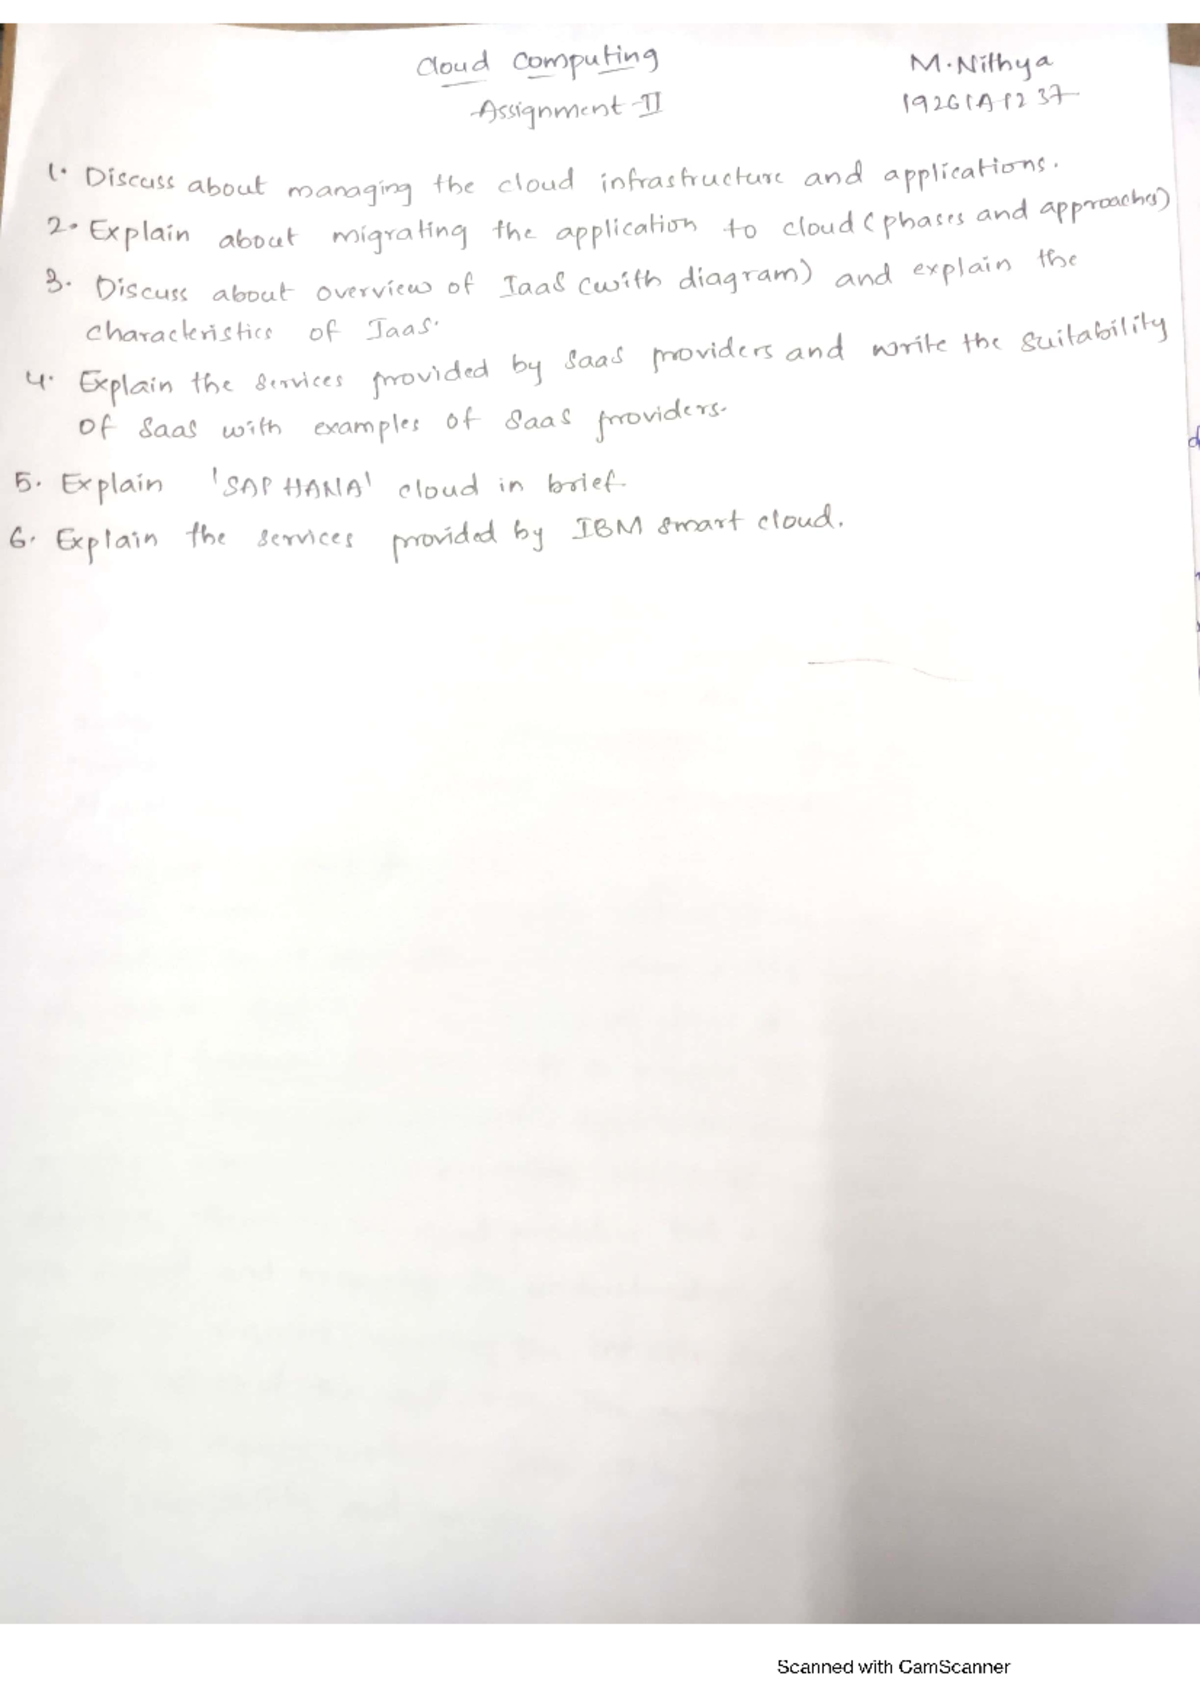 Cloud Computing
M.Nithya
Assignment-II
19261A1237
1. Discuss about managing the cloud infrastructure and applications.
2. Explain about migrating the application to cloud (phases and approaches)
3. Discuss about overview of IaaS (with diagram) and explain the
characteristics of IaaS.
4. Explain the services provided by SaaS providers and write the suitability
of SaaS with examples of SaaS providers.
5. Explain 'SAP HANA' cloud in brief.
6. Explain the services provided by IBM smart cloud.
Scanned with CamScanner